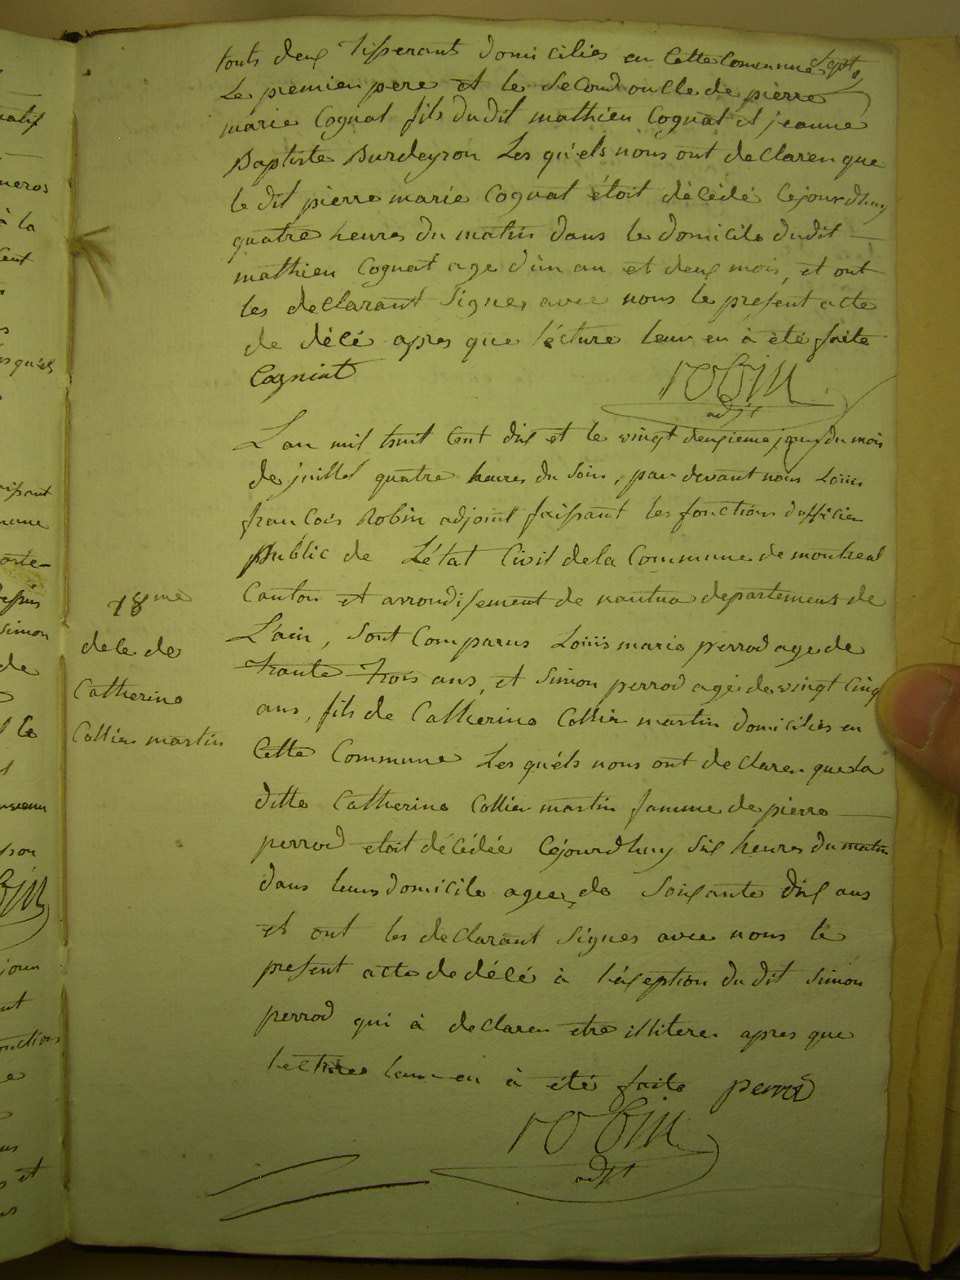 touts deux Tisserant domiciliés en cette Commune Sept
Le premier pere et le second oncle de pierre
marie Cognat fils dudit mathieu Cognat et jeanne
Baptiste Burdeyron Les qu'els nous ont declaren que
le dit pierre marie Cognat étoit décédé cejourdhuy
quatre heures du matin dans le domicile dudit
mathieu Cognat age d'un an et deux mois, et ont
les declarant Signes avec nous le present acte
de décé apres que lécture leur en à été faite
Cogniat robin
adjt
L'an mil huit cent dix et le vingt deuxieme jour du mois
de juillet quatre heures du soir, par devant nous Loüis
francois Robin adjoint faissant les fonctions dofficier
public de L'état Civil de la Commune de montreal
Canton et arrondisement de nantua departement de
L'ain, sont Comparus Loüis marie perrod age de
trante trois ans, et Simon perrod agé de vingt cinq
ans, fils de Catherine Collier martin domicilies en
Cette Commune Les qu'els nous ont declaren que la
ditte Catherine Collier martin famme de pierre
perrod etoit décédée Cejourdhuy six heures du matin
dans leurs domicile agee de soixante dix ans
et ont les declarant signes avec nous le
present acte de décé à l'éxception du dit Simon
perrod qui à declaren etre illiteré apres que
lecture leur en à été faite perrod
robin
adjt
78me
décé de
Catherine
Collier martin